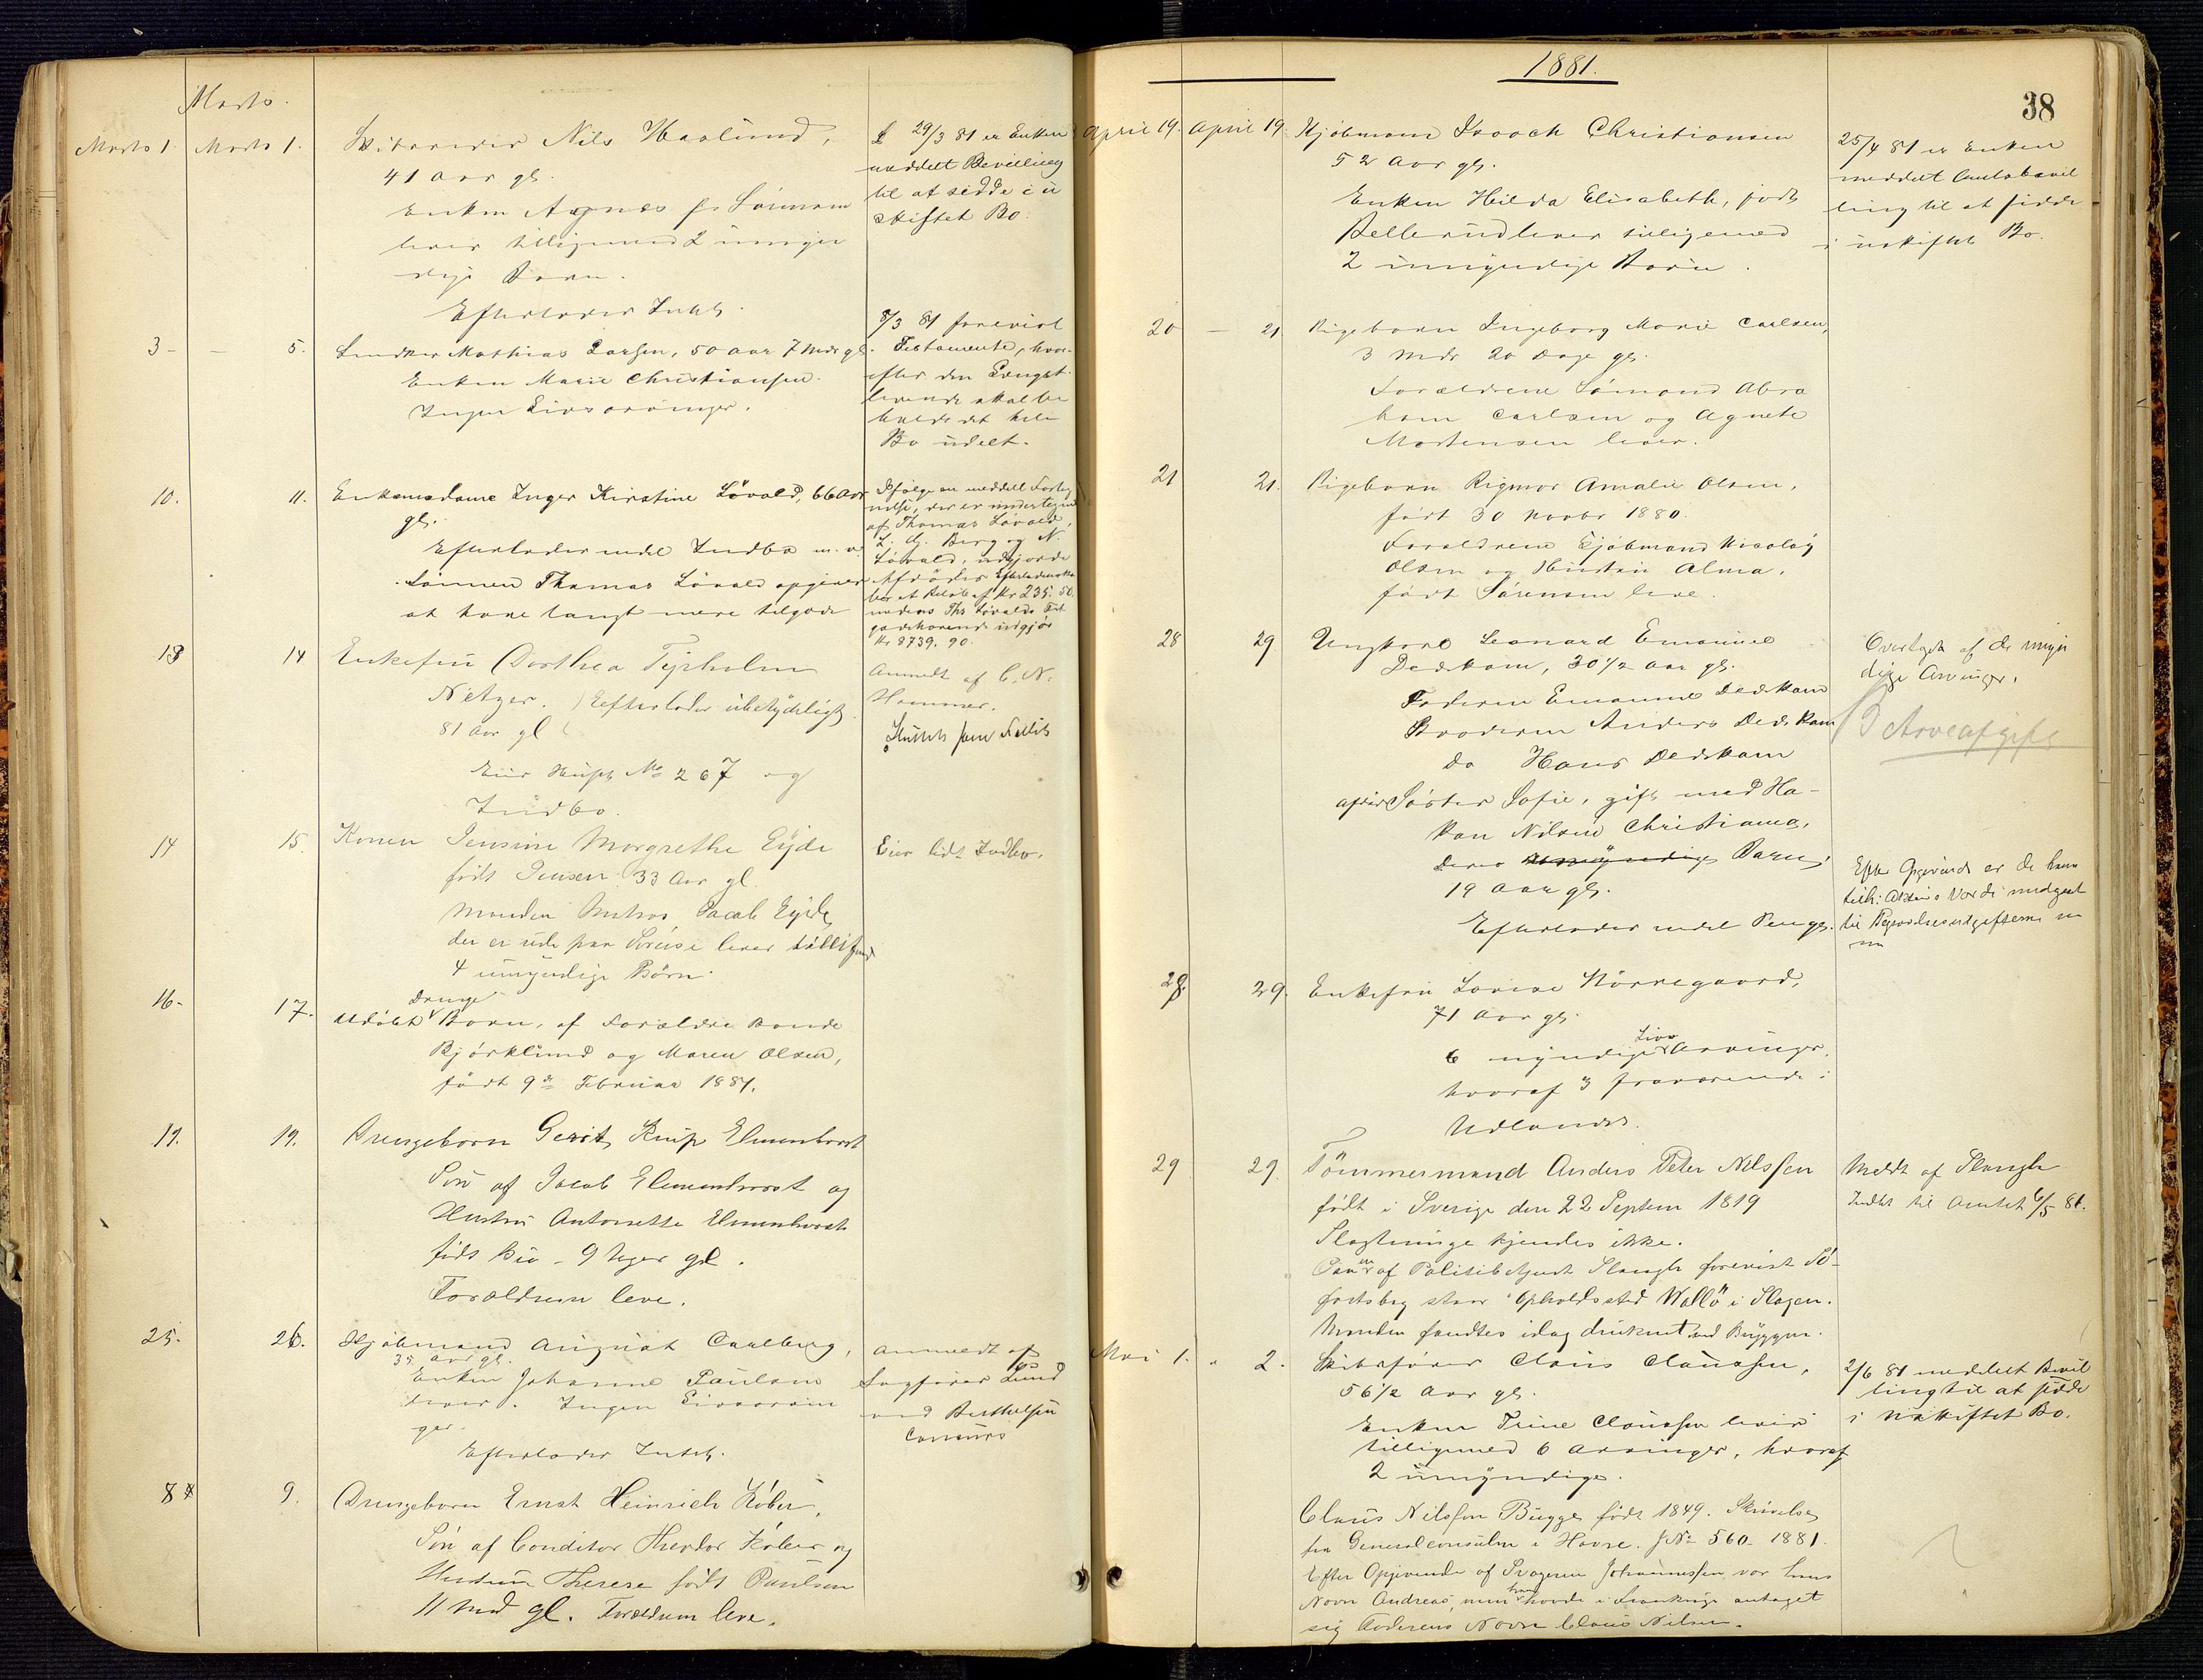 Marts.
Marts 1. Marts 1. Nils Haslund,
41 Aar gl.
Enken Agnes f.
lever tilligemed 2 umyn
dige Børn.
Efterlader Intet.
29/3 81 er Enken
meddelt Bevilling
til at sidde i u
skiftet Bo.
3 - - 5. Mathias Larsen, 50 Aar 7 Mdr gl.
Enken Marie Christiansen.
Ingen Livsarvinger.
8/3 81 forevist
Testamente, hvor-
efter den Længst-
levende skal be
holde det hele
Bo udelt.
10. 11. Enkemadame Inger Kirstine Løvald, 66 Aar
gl.
Efterlader endel Indbo m. v.
Sønnen Thomas Løvald opgiver
at have langt mere tilgode
Ifølge en meddelt Forteg
nelse, der er undertegnet
af Thomas Løvald,
L. G. Berg og N.
Løvald, udgjorde
Afdødes Efterladenska
ber et Beløb af Kr 235. 50
medens Ths Løvalds Til
godehavende udgjør
Kr 8739. 90
13 14 Enkefru Dorthea Tyrholm
Netzer. Efterlader ubetydeligt
81 Aar gl
Eier Huset No 267 og
Indbo.
Anmeldt af C. N.
Hammer.
14 15. Konen Jensine Margrethe Eyde
født Jensen 33 Aar gl.
Manden Jacob Eyde,
der er ude paa lever tilligemed
4 umyndige Børn.
Eier lidt Indbo.
16 - 17. Udøbt Drenge Barn, af Forældre
Bjørklund og Maren Olsen,
født 9de Februar 1881.
19. 19. Drengebarn Gerit Knip Elmenhorst
Søn af Jacob Elmenhorst og
Hustru Antonette Elmenhorst
født - 9 Uger gl.
Forældrene leve.
25. 26. August Carlberg,
35 Aar gl.
Enken Johanne Paulsen
lever. Ingen Livsarvin
ger.
Efterlader Intet.
Anmeldt af
Sagfører Lund
ved Berthelsen
8 9. Drengebarn Ernst Heinrich Köber,
Søn af Conditor Theodor Köber og
Hustru Therese født Paulsen
11 Md gl. Forældrene leve.
1881.
38
April 19. April 19 Isaach Christiansen
52 Aar gl.
Enken Hilda Elisabeth, født
Pellerud lever tilligemed
2 umyndige Børn.
25/4 81 er Enken
meddelt Amtsbevil
ling til at sidde
i uskiftet Bo.
20 - 21 Pigebarn Ingeborg Marie Carlsen,
3 Mdr 20 Dage gl.
Forældrene Sømand Abra
ham Carlsen og Agnete
Mortensen lever.
21 21. Pigebarn Rigmor Amalie Olsen,
født 30 Novbr 1880.
Forældrene Nicolay
Olsen og Hustru Alma,
født Sørensen leve.
28 29 Ungkarl Leonard Emanuel
Dedekam, 30 1/2 Aar gl.
Faderen Emanuel Dedekam
Broderen Anders Dedekam
do Hans Dedekam
afdøde Søster Sofie, gift med Ha-
kon Nilsen Christiania,
deres umyndige Barn,
19 Aar gl.
Efterlader endel Penge.
Overtaget af de myn
dige Arvinger.
? Arveafgift
Efter Opgivende er de ham
tilh: Aktiers Værdi medgaaet
til Begravelsesudgifterne m
m
28. 29. Enkefru Lovise Nörregaard,
71 Aar gl.
6 myndige Livs Arvinger,
hvoraf 3 fraværende i
Udlandet.
29 29. Tömmermand Anders Peter Nilssen
født i Sverige den 22 Septem 1819
Slægtninge kjendes ikke.
I en af Politibetjent Slangh forevist Sø-
fartsbog staar "Opholdssted Wallö" i Slagen.
Manden fandtes idag druknet ved Bryggen.
Meldt af Slangh
Indbt til Amtet 6/5 81.
Mai 1. " 2. Skibsfører Claus Claussen,
56 1/2 Aar gl.
Enken Trine Claussen lever
tilligemed 6 Arvinger, hvoraf
2 umyndige.
2/6 81 meddelt Bevil
ling til at sidde
i uskiftet Bo.
Claus Nilssen Bugge født 1849. Skrivelse
fra Generalconsulen i Havre. J No 560 - 1881.
Efter Opgivende af Svogeren Johannessen var hans
Navn Andreas, men han havde i Frankrige antaget
sig Faderens Navn Claus Nilsen.